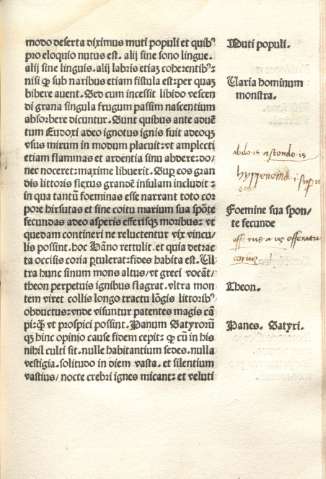 modo deserta diximus muti populi et quibꝰ
pro eloquio nutus est. alij sine sono lingue.
alij sine linguis. alij labris etiaʒ coherentibꝰ:
nisi ꝙ sub naribus etiam fistula est: per quaʒ
bibere auent. Sed cum incessit libido vescen
di grana singula frugum passim nascentium
absorbere dicuntur. Sunt quibus ante aduē
tum Eudoxi adeo ignotus ignis fuit adeoqʒ
visus mirum in modum placuit: vt amplecti
etiam flammas et ardentia sinu abdere: do-
nec noceret: maxime libuerit. Sup eos gran
dis littoris flexus grandē insulam includit: in
qua tantū foeminas esse narrant toto cor
pore hirsutas et sine coitu marium sua spōte
fecundas adeo asperis efferisqʒ moribus: vt
quedam contineri ne reluctentur vix vincu-
lis possint. hoc Hāno rettulit. et quia detrac
ta occisis coria ptulerat: fides habita est. Ul
tra hunc sinum mons altus/ vt greci vocāt/
theon perpetuis ignibus flagrat. vltra mon
tem viret collis longo tractu lōgis littoribꝰ
obductus: vnde visuntur patentes magis cā
pi: ꝙ̄ vt prospici possint. Panum Satyrorūʒ
qʒ hinc opinio cause fidem cepit: ꝙ cū in his
nihil culti sit. nulle habitantium sedes. nulla
vestigia. solitudo in diem vasta. et silentium
vastius/ nocte crebri ignes micant: et veluti
Muti populi.
Uaria hominum
monstra.
Foemine sua spon-
te fecunde
Theon.
Panes. Satyri.